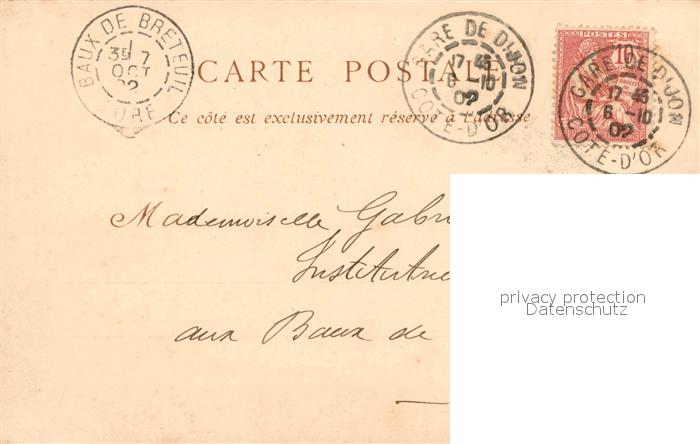 BAUX DE BRETEUIL
7
OCT
02
EURE
CARTE POSTALE
GARE DE DIJON
17-45
6 -10
02
COTE-D'OR
POSTES
10
GARE DE DIJON
17-45
6 -10
02
COTE-D'OR
Ce côté est exclusivement réservé à l'adresse
Mademoiselle Gabr
Institutric
aux Baux de
privacy protection
Datenschutz